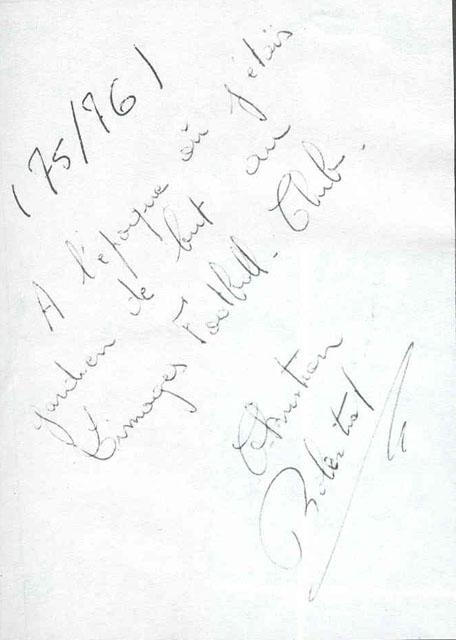 (75/76)
A l'époque où j'étais
gardien de but au
Limoges Football-Club.
Christian